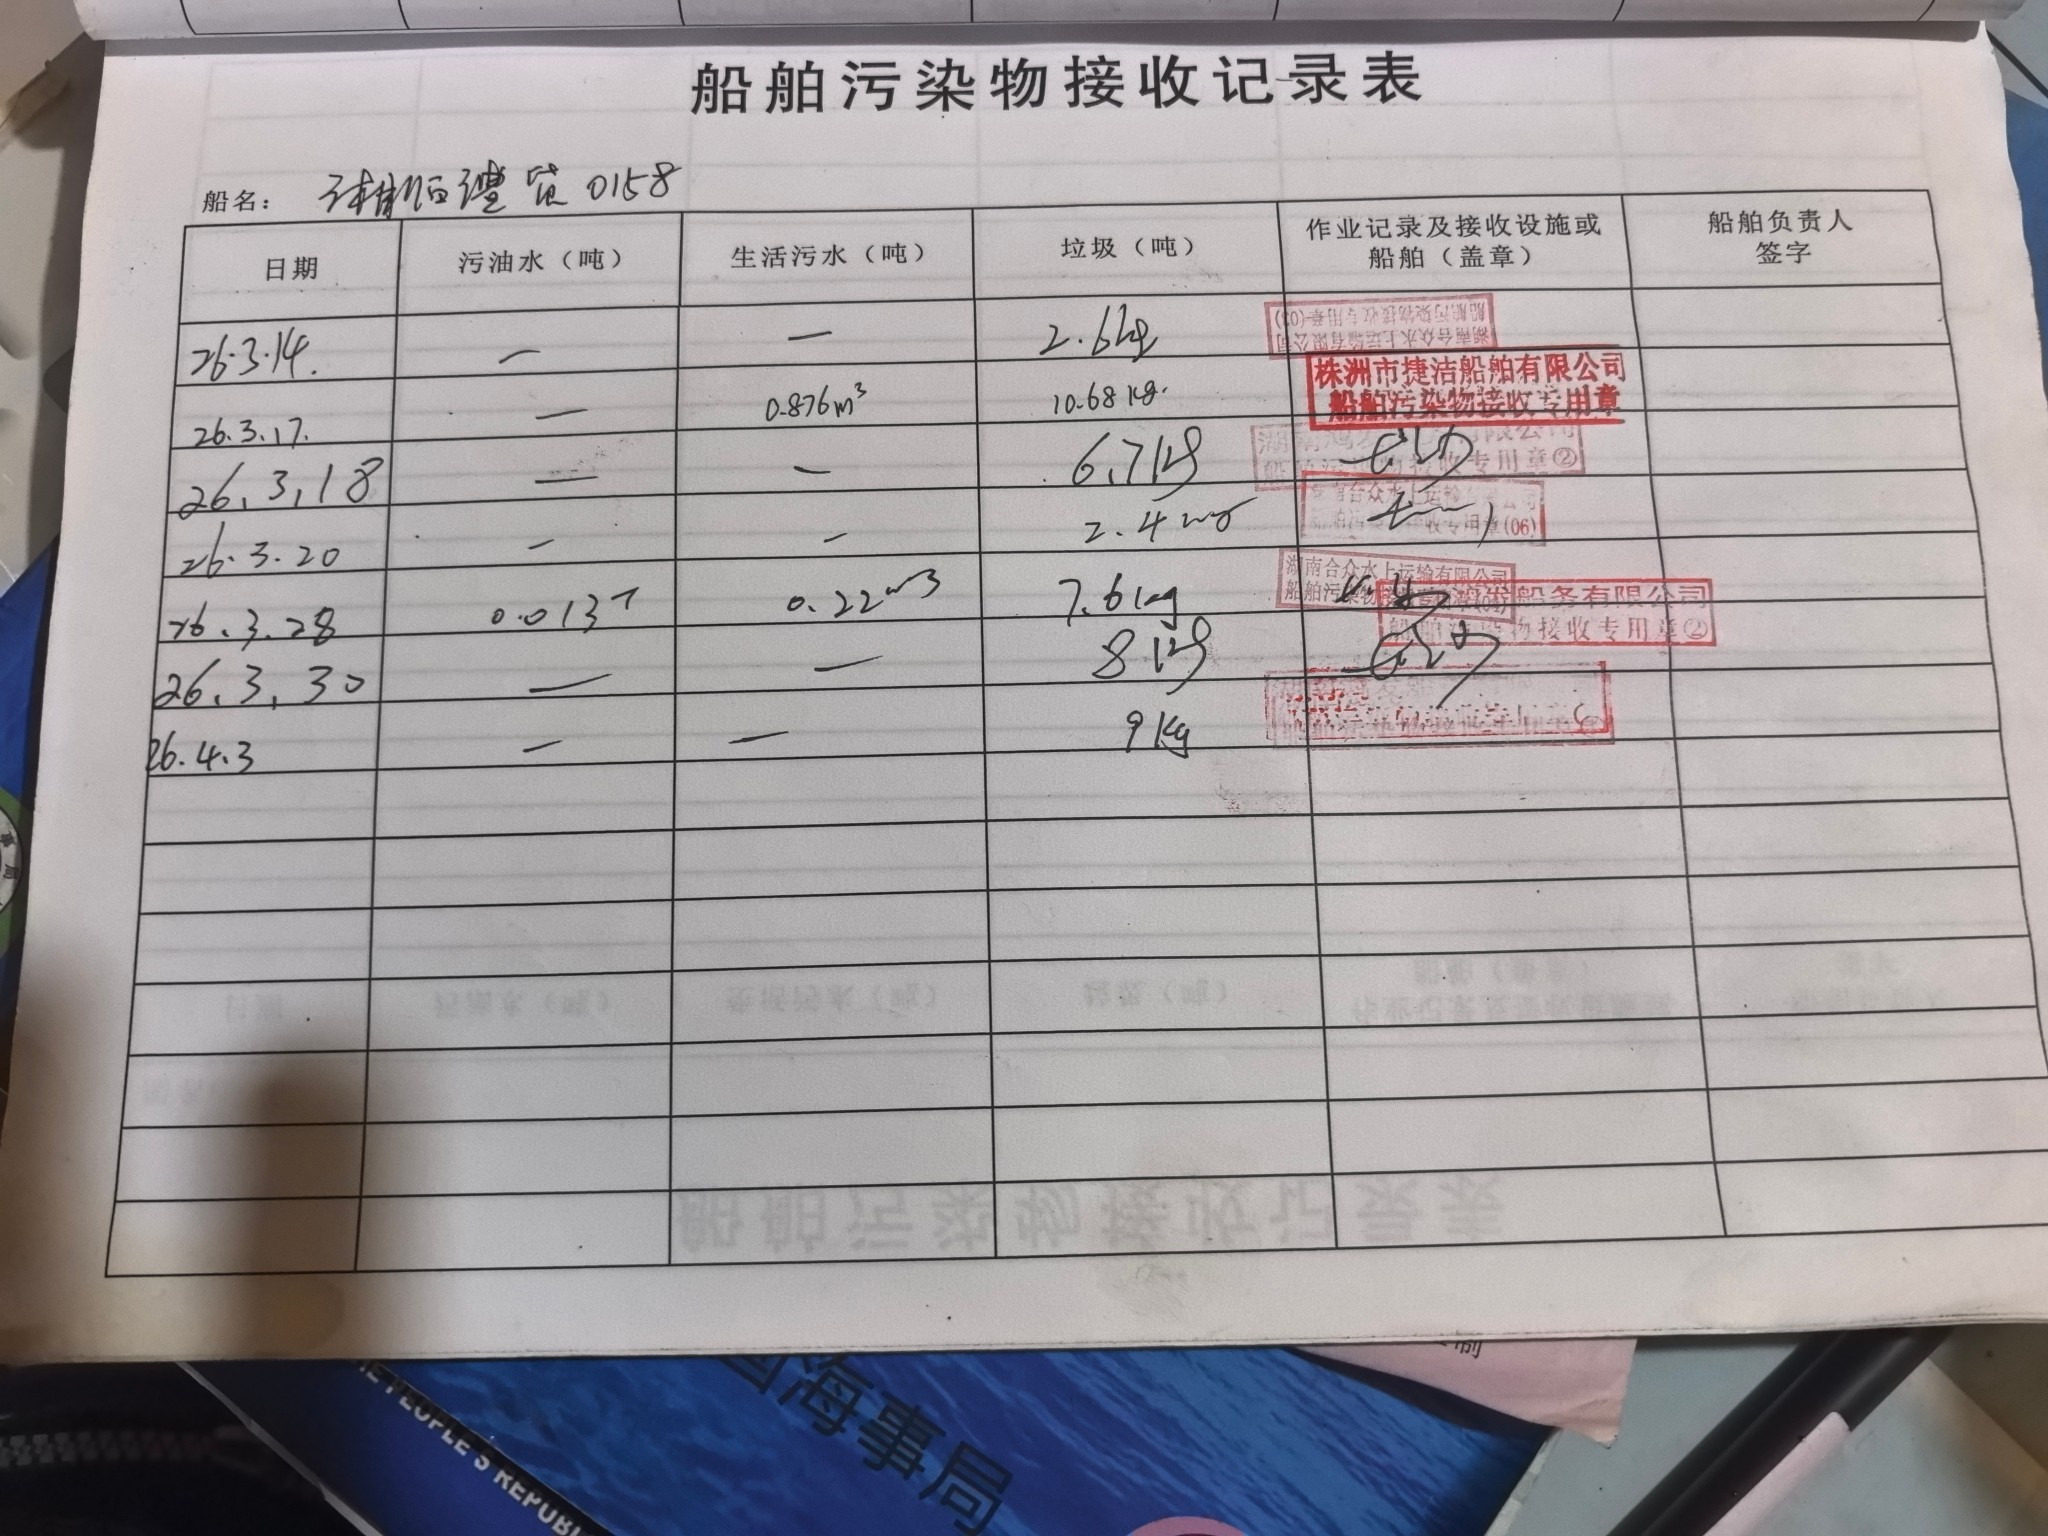 船舶污染物接收记录表
船名： 0158
日期 污油水（吨） 生活污水（吨） 垃圾（吨） 作业记录及接收设施或船舶（盖章） 船舶负责人签字
26.3.14. — — 2.6kg
船舶污染物接收专用章(03)
湖南合众水上运输有限公司
26.3.17. — 0.876m³ 10.68kg.
株洲市捷洁船舶有限公司
船舶污染物接收专用章
26.3.18 — — 6.7kg
船舶污染物接收专用章②
26.3.20 — — 2.4
南合众水上运输有限公司
接收专用章(06)
26.3.28 0.013T 0.22m3 7.6kg
湖南合众水上运输有限公司
船舶污染物
26.3.30 — — 8kg
发船务有限公司
船舶污染物接收专用章②
26.4.3 — — 9kg
国海事局
HE PEOPLE'S REPUBL
制